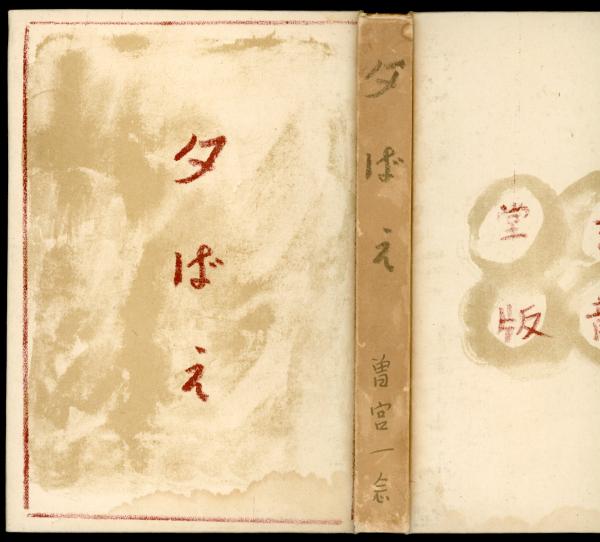 夕ばえ
夕ばえ
曽宮一念
堂
版